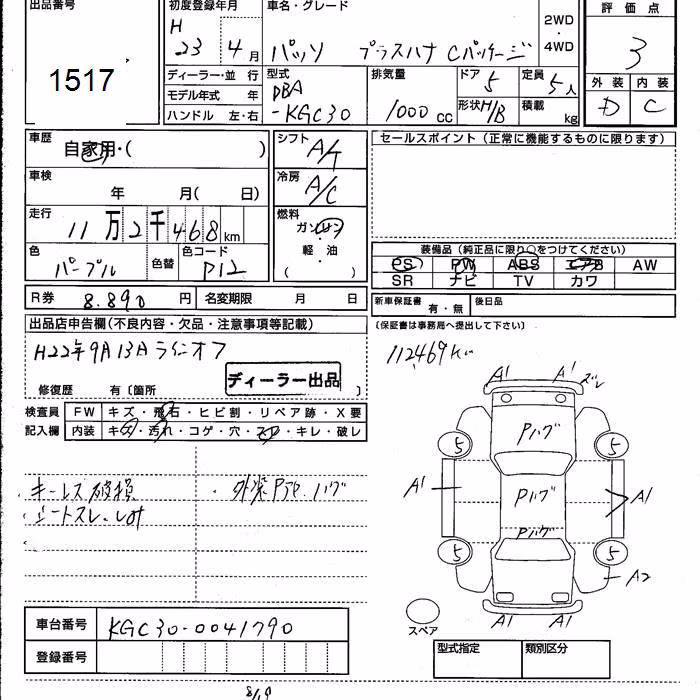 出品番号
1517
初度登録年月
H
23 4 月
車名・グレード
パッソ プラスハナ Cパッケージ
2WD
・
4WD
評価点
3
外装 内装
D C
ディーラー・並 行
モデル年式 年
ハンドル 左・右
型式
DBA
-KGC30
排気量
1000 cc
ドア 5
形状 H/B
定員 5人
積載 kg
車歴
自家用・( )
車検
年 月( 日)
走行
11 万 2 千 468 km
色
パープル
色替
色コード
P12
シフト
A/T
冷房
A/C
燃料
ガソリン
軽・油
( )
セールスポイント（正常に機能するものに限ります）
装備品（純正品に限り○をつけてください）
PS PW ABS エアB AW
SR ナビ TV カワ
R券 8.890 円 名変期限 月 日
新車保証書 有・無 後日品
（保証書は事務局へ提出して下さい）
出品店申告欄（不良内容・欠品・注意事項等記載）
H22年9月13日ラインオフ
修復歴 有〔箇所 〕
ディーラー出品
112469 km
検査員
記入欄
FW キズ・飛石・ヒビ割・リペア跡・X要
内装 キズ・汚れ・コゲ・穴・スレ・キレ・破レ
・キーレス破損
・シートスレ、
・外装 ハゲ
A1 A1 ズレ
Pハゲ
5 5
A1 Pハゲ A1
Pハゲ
5 5
A2
A1 A1
スペア
車台番号 KGC30-0041790
登録番号
型式指定 類別区分